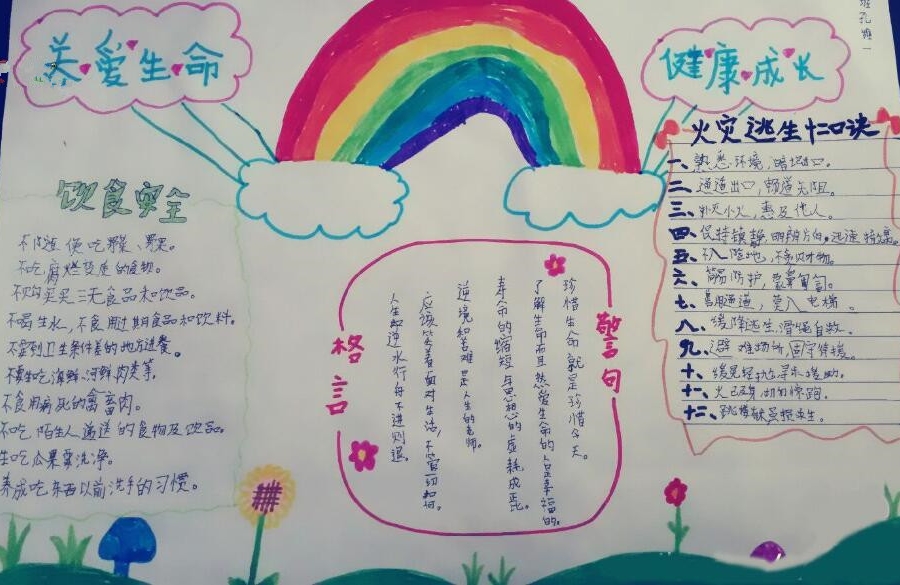 关爱生命
健康成长
班孔
饮食安全
不随便吃野菜、野果。
不吃腐烂变质的食物。
不购买三无食品和饮品。
不喝生水,不食用过期食品和饮料。
不要到卫生条件差的地方进餐。
不要生吃海鲜、河鲜、肉类等。
不食用病死的禽畜肉。
不吃陌生人递送的食物及饮品。
生吃瓜果要洗净。
养成吃东西以前洗手的习惯。
格言
警句
珍惜生命就是珍惜今天。
了解生命而且热爱生命的人是幸福的。
寿命的缩短与思想的虚耗成正比。
逆境和苦难是人生的老师。
应该笑着面对生活,不管一切如何。
人生如逆水行舟不进则退。
火灾逃生十二口诀
一、熟悉环境,暗记出口。
二、通道出口,畅通无阻。
三、扑灭小火,惠及他人。
四、保持镇静,明辨方向,迅速撤离。
五、不入险地,不贪财物。
六、简易防护,蒙鼻匍匐。
七、善用通道,莫入电梯。
八、缓降逃生,滑绳自救。
九、避难场所,固守待援。
十、缓晃轻抛,寻求援助。
十一、火已及身,切勿惊跑。
十二、跳楼